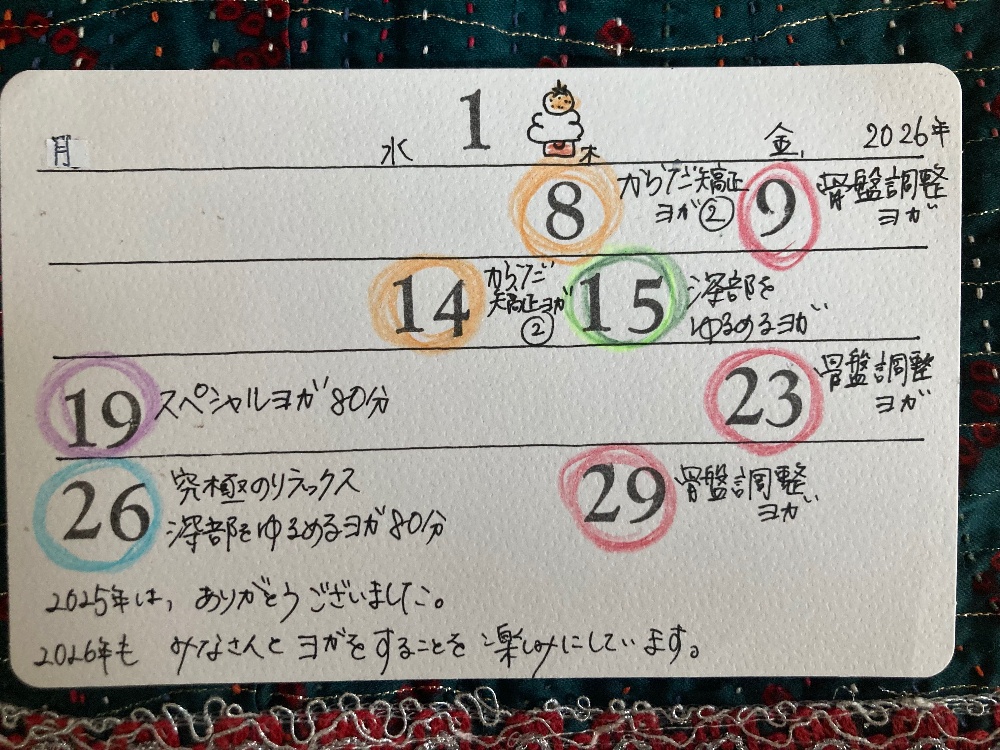 1
月 水 木 金 2026年
8 からだ矯正
ヨガ②
9 骨盤調整
ヨガ
14 からだ
矯正ヨガ
②
15 深部を
ゆるめるヨガ
19 スペシャルヨガ80分
23 骨盤調整
ヨガ
26 究極のリラックス
深部をゆるめるヨガ80分
29 骨盤調整
ヨガ
2025年は、ありがとうございました。
2026年も みなさんと ヨガをすることを 楽しみにしています。